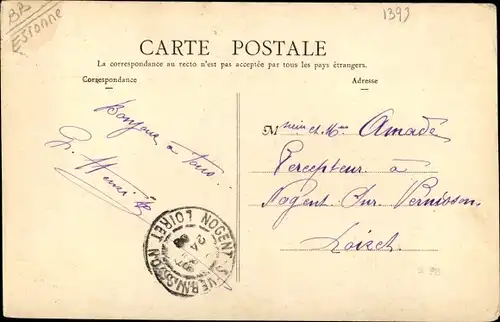 BB
Essonne
1393
CARTE POSTALE
La correspondance au recto n'est pas acceptée par tous les pays étrangers.
Correspondance
Adresse
Bonjour
à tous..
Henri
M et Mme Amadé
Percepteur à
Nogent Sur Vernisson
Loiret
NOGENT-S-VERNISSON
LOIRET